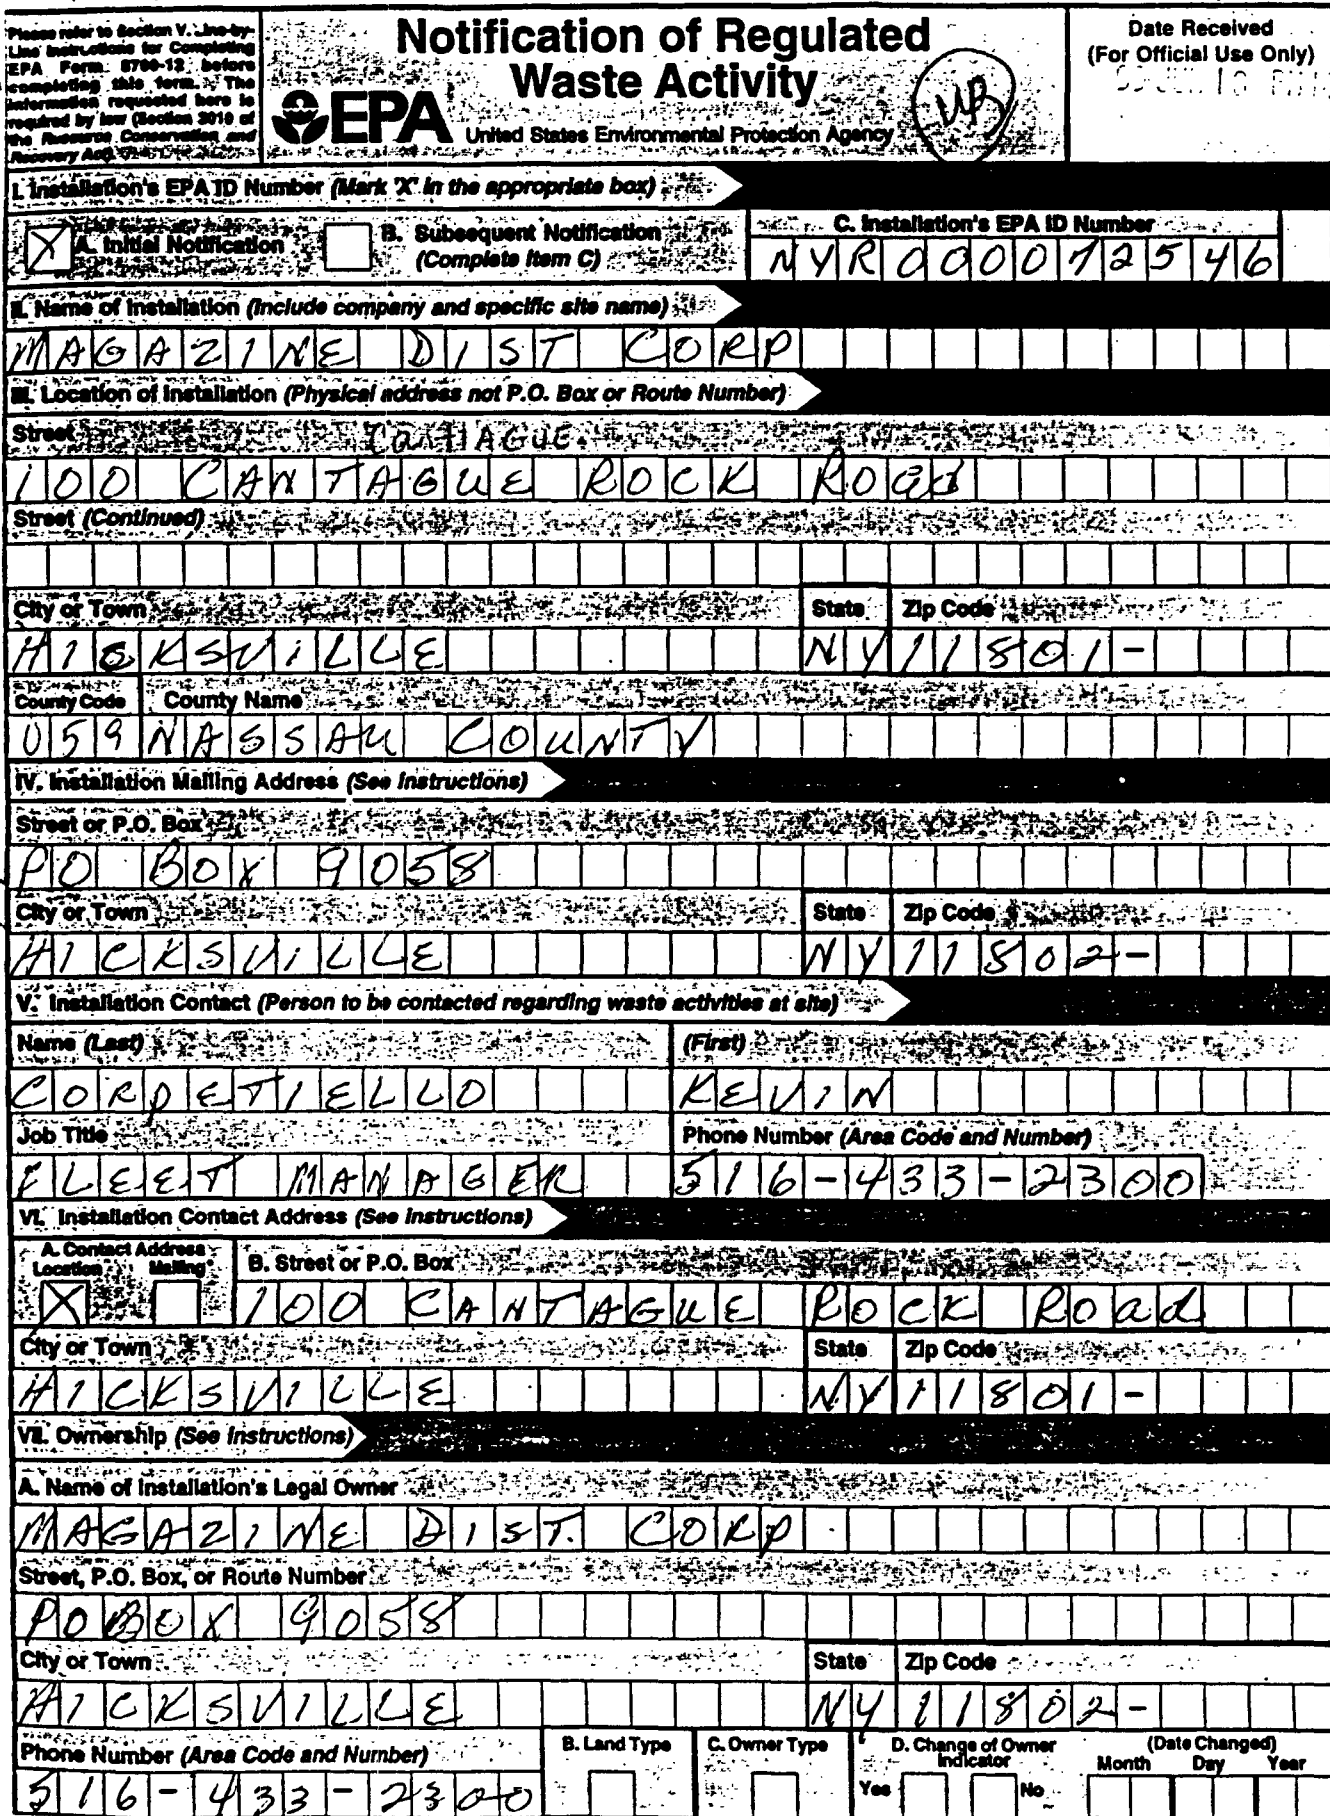 Please refer to Section V. Line-by-
Line Instructions for Completing
EPA Form 8700-12 before
completing this form. The
information requested here is
required by law (Section 3010 of
the Resource Conservation and
Recovery Act).
Notification of Regulated
Waste Activity
EPA
United States Environmental Protection Agency
Date Received
(For Official Use Only)
I. Installation's EPA ID Number (Mark 'X' in the appropriate box)
X A. Initial Notification
B. Subsequent Notification
(Complete Item C)
C. Installation's EPA ID Number
NYR000072546
II. Name of Installation (Include company and specific site name)
MAGAZINE DIST CORP
III. Location of Installation (Physical address not P.O. Box or Route Number)
Street
100 CANTAGUE ROCK ROad
Street (Continued)
City or Town State Zip Code
HICKSViLLE NY 11801-
County Code County Name
059 NASSAU COUNTY
IV. Installation Mailing Address (See instructions)
Street or P.O. Box
PO BOX 9058
City or Town State Zip Code
HICKSViLLE NY 11802-
V. Installation Contact (Person to be contacted regarding waste activities at site)
Name (Last) (First)
CORPETIELLO KEVIN
Job Title Phone Number (Area Code and Number)
FLEET MANAGER 516-433-2300
VI. Installation Contact Address (See instructions)
A. Contact Address
Location Mailing B. Street or P.O. Box
X 100 CANTAGUE ROCK ROad
City or Town State Zip Code
HICKSVILLE NY 11801-
VII. Ownership (See instructions)
A. Name of Installation's Legal Owner
MAGAZINE DIST. CORP
Street, P.O. Box, or Route Number
PO BOX 9058
City or Town State Zip Code
HICKSVILLE NY 11802-
Phone Number (Area Code and Number) B. Land Type C. Owner Type D. Change of Owner Indicator (Date Changed)
Month Day Year
516-433-2300 Yes No